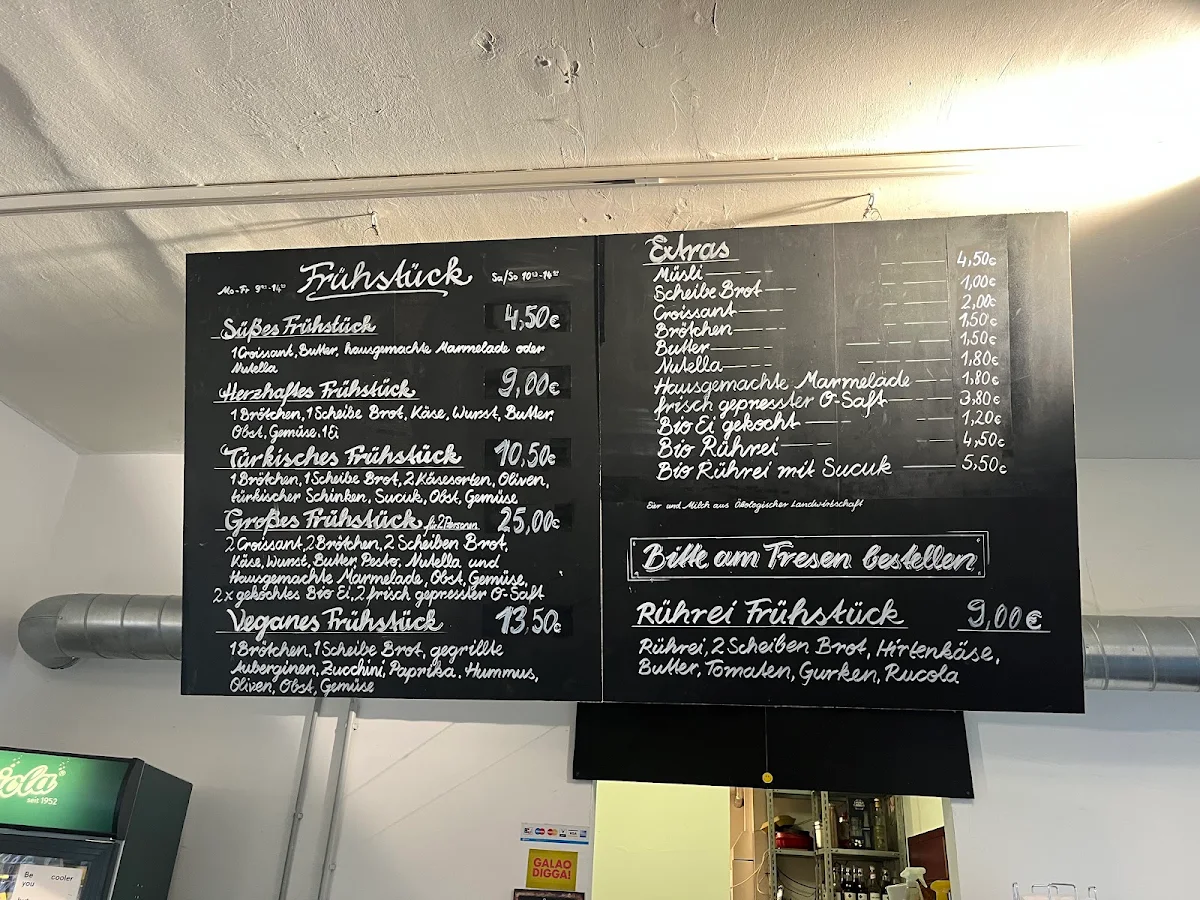 Frühstück
Mo-Fr 9⁰⁰-14⁰⁰
Sa/So 10⁰⁰-14⁰⁰
Süßes Frühstück 4,50€
1 Croissant, Butter, hausgemachte Marmelade oder
Nutella
Herzhaftes Frühstück 9,00€
1 Brötchen, 1 Scheibe Brot, Käse, Wurst, Butter,
Obst, Gemüse, 1 Ei
Türkisches Frühstück 10,50€
1 Brötchen, 1 Scheibe Brot, 2 Käsesorten, Oliven,
türkischer Schinken, Sucuk, Obst, Gemüse
Großes Frühstück für 2 Personen 25,00€
2 Croissant, 2 Brötchen, 2 Scheiben Brot,
Käse, Wurst, Butter, Pesto, Nutella und
Hausgemachte Marmelade, Obst, Gemüse,
2x gekochtes Bio Ei, 2 frisch gepresster O-Saft
Veganes Frühstück 13,50€
1 Brötchen, 1 Scheibe Brot, gegrillte
Auberginen, Zucchini, Paprika, Hummus,
Oliven, Obst, Gemüse
Extras
Müsli 4,50€
Scheibe Brot 1,00€
Croissant 2,00€
Brötchen 1,50€
Butter 1,50€
Nutella 1,80€
Hausgemachte Marmelade 1,80€
frisch gepresster O-Saft 3,80€
Bio Ei gekocht 1,20€
Bio Rührei 4,50€
Bio Rührei mit Sucuk 5,50€
Eier und Milch aus Ökologischer Landwirtschaft
Bitte am Tresen bestellen
Rührei Frühstück 9,00€
Rührei, 2 Scheiben Brot, Hirtenkäse,
Butter, Tomaten, Gurken, Rucola
iola
seit 1952
Be cooler
you
GALAO
DIGGA!